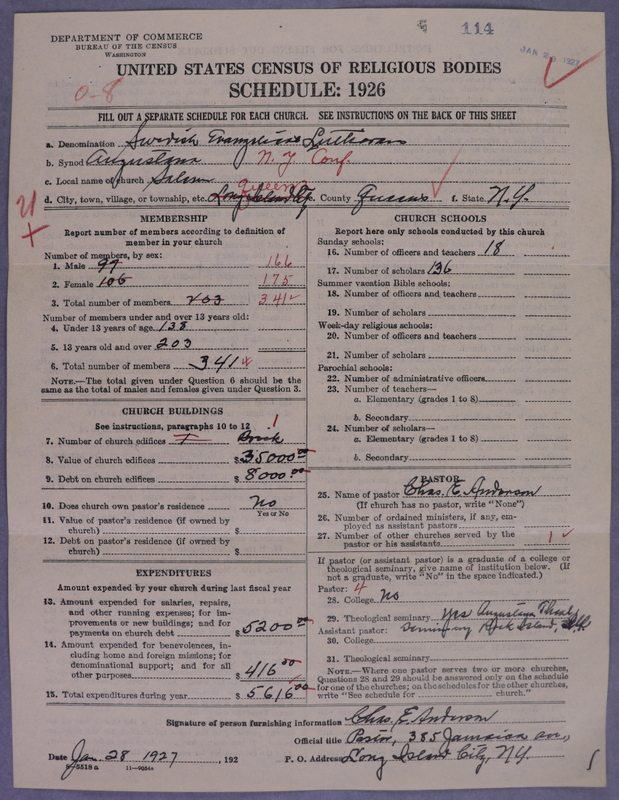 DEPARTMENT OF COMMERCE
BUREAU OF THE CENSUS
WASHINGTON
114
JAN 29 1927
UNITED STATES CENSUS OF RELIGIOUS BODIES
SCHEDULE: 1926
0-8
FILL OUT A SEPARATE SCHEDULE FOR EACH CHURCH. SEE INSTRUCTIONS ON THE BACK OF THIS SHEET
a. Denomination Swedish Evangelical Lutheran
b. Synod Augustana N. Y. Conf
c. Local name of church Salem
d. City, town, village, or township, etc. Long Island City Queens e. County Queens f. State N.Y.
MEMBERSHIP
Report number of members according to definition of
member in your church
Number of members, by sex:
1. Male 97 166
2. Female 106 175
3. Total number of members 203 341
Number of members under and over 13 years old:
4. Under 13 years of age 138
5. 13 years old and over 203
6. Total number of members 341
NOTE.—The total given under Question 6 should be the
same as the total of males and females given under Question 3.
CHURCH BUILDINGS
See instructions, paragraphs 10 to 12
7. Number of church edifices 1 Brick 1
8. Value of church edifices $35000.00
9. Debt on church edifices $8000.00
10. Does church own pastor's residence? No
Yes or No
11. Value of pastor's residence (if owned by
church) $
12. Debt on pastor's residence (if owned by
church) $
EXPENDITURES
Amount expended by your church during last fiscal year
13. Amount expended for salaries, repairs,
and other running expenses; for im-
provements or new buildings; and for
payments on church debt $5200.00
14. Amount expended for benevolences, in-
cluding home and foreign missions; for
denominational support; and for all
other purposes $416.00
15. Total expenditures during year $5616.00
CHURCH SCHOOLS
Report here only schools conducted by this church
Sunday schools:
16. Number of officers and teachers 18
17. Number of scholars 136
Summer vacation Bible schools:
18. Number of officers and teachers
19. Number of scholars
Week-day religious schools:
20. Number of officers and teachers
21. Number of scholars
Parochial schools:
22. Number of administrative officers
23. Number of teachers—
a. Elementary (grades 1 to 8)
b. Secondary
24. Number of scholars—
a. Elementary (grades 1 to 8)
b. Secondary
PASTOR
25. Name of pastor Chas. E. Anderson
(If church has no pastor, write "None")
26. Number of ordained ministers, if any, em-
ployed as assistant pastors
27. Number of other churches served by the
pastor or his assistants 1
If pastor (or assistant pastor) is a graduate of a college or
theological seminary, give name of institution below. (If
not a graduate, write "No" in the space indicated.)
Pastor: 4
28. College No
29. Theological seminary Yes Augustana Theol.
Assistant pastor: Seminary Rock Island, Ill.
30. College
31. Theological seminary
NOTE.—Where one pastor serves two or more churches,
Questions 28 and 29 should be answered only on the schedule
for one of the churches; on the schedules for the other churches,
write "See schedule for church."
Signature of person furnishing information Chas. E. Anderson
Official title Pastor, 385 Jamaica ave.,
Date Jan. 28 1927, 192 P. O. Address Long Island City, N.Y.
8-5518a 11-9254a